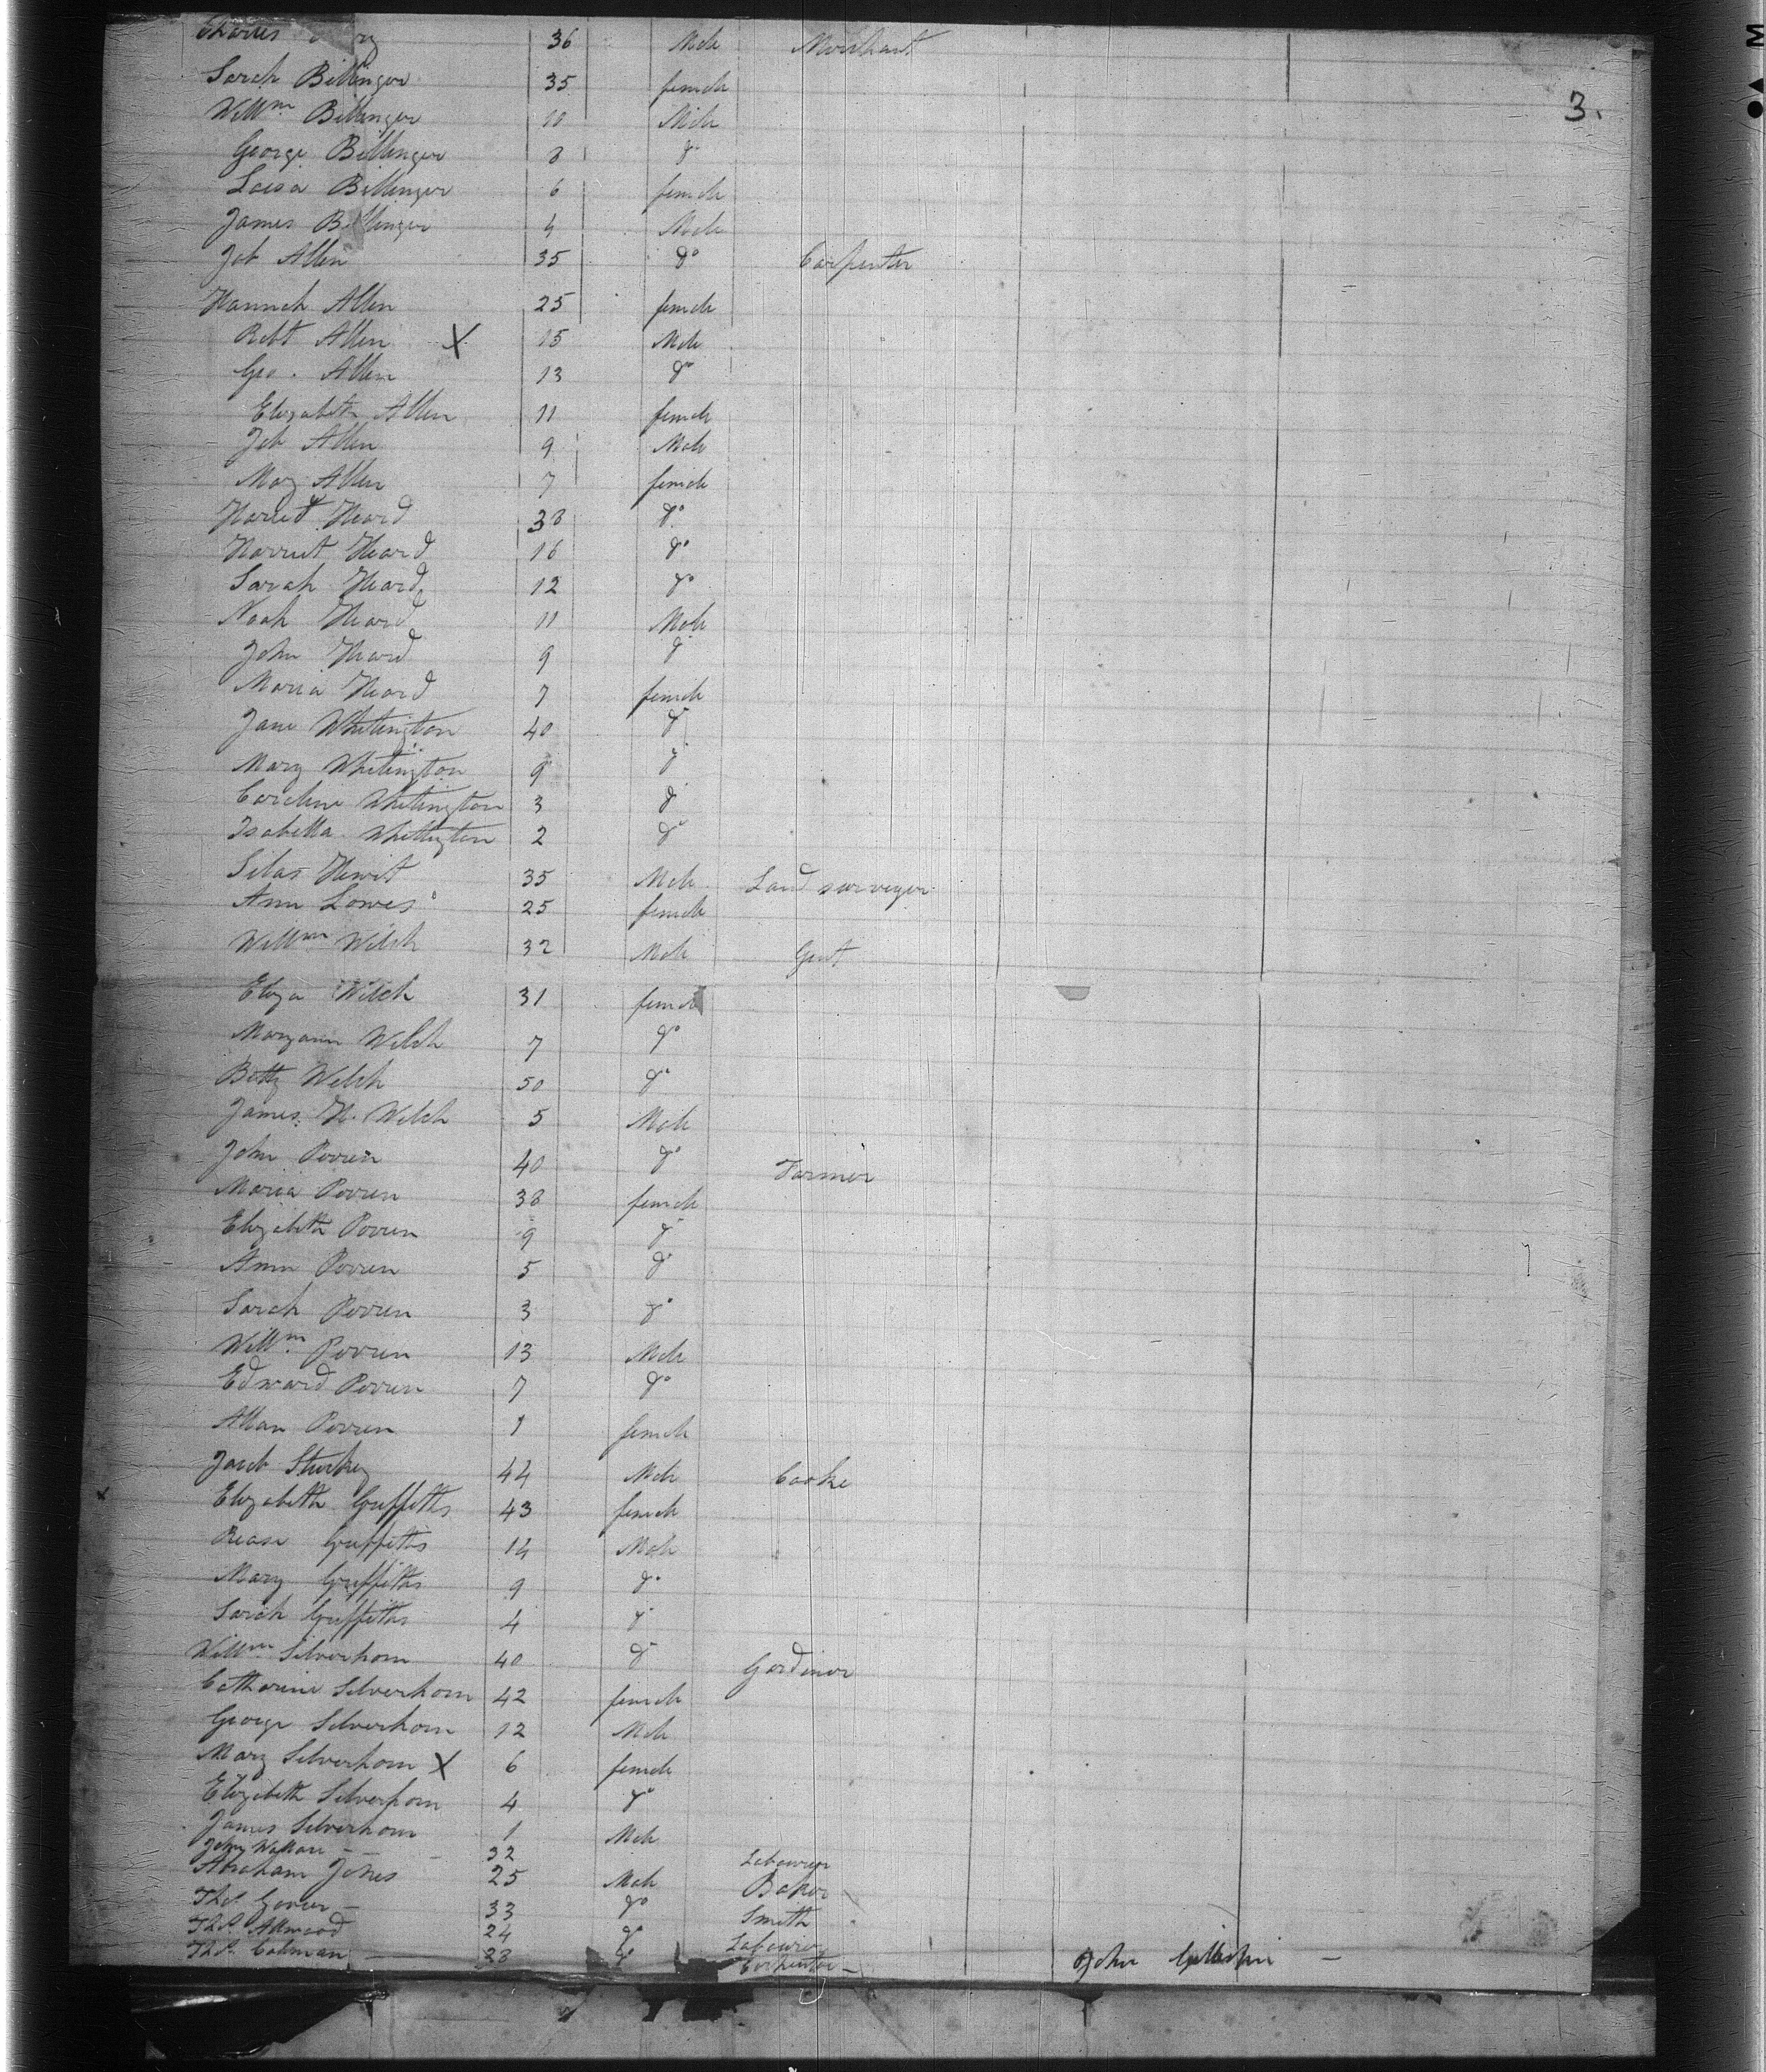 Charles 36 Male Merchant
Sarah Billinger 35 female
3.
Willm Billinger 10 Male
George Billinger 8 do
Loisa Billinger 6 female
James Billinger 4 Male
Job Allen 35 do Carpenter
Hannah Allen 25 female
Robt Allen X 15 Male
Geo. Allen 13 do
Elizabeth Allen 11 female
Job Allen 9 Male
Mary Allen 7 female
Harriet Heard 38 do
Harriet Heard 16 do
Sarah Heard 12 do
Noah Heard 11 Male
John Heard 9 do
Maria Heard 7 female
Jane Whitington 40 do
Mary Whitington 9 do
Caroline Whitington 3 do
Isabella Whittington 2 do
Silas Hewit 35 Male Land surveyor
Ann Lowes 25 female
Willm Welch 32 Male Gent
Eliza Welch 31 female
Maryann Welch 7 do
Betty Welch 50 do
James H. Welch 5 Male
John Perren 40 do Farmer
Maria Perren 38 female
Elizabeth Perren 9 do
Ann Perren 5 do
Sarah Perren 3 do
Willm Perren 13 Male
Edward Perren 7 do
Allan Perren 1 female
Jacob 44 Male Cooke
x Elizabeth Griffiths 43 female
Griffiths 14 Male
Mary Griffiths 9 do
Sarah Griffiths 4 do
Willm Silverhorn 40 do Gardiner
Catharine Silverhorn 42 female
George Silverhorn 12 Male
Mary Silverhorn X 6 female
Elizabeth Silverhorn 4 do
James Silverhorn 1 Male
John Wallace 32 Labourer
Abraham Jones 25 Male Baker
Thos. 33 do Smith
Thos. Allwood 24 do Labourer
Thos. Colman 28 do Carpenter John Gillespie